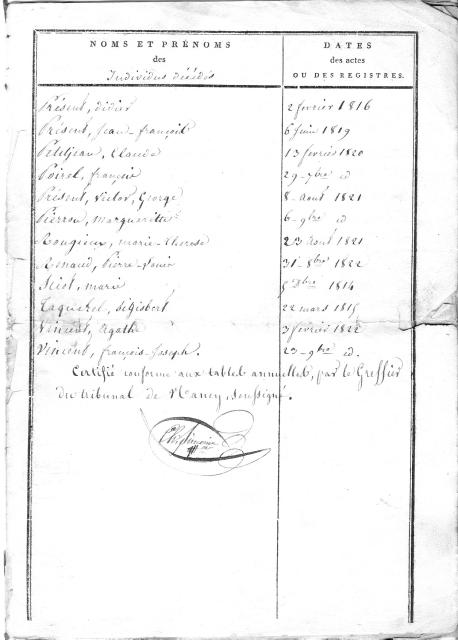 NOMS ET PRÉNOMS
des
Individus décédés
DATES
des actes
OU DES REGISTRES.
Présent, didier 2 fevrier 1816
Présent, Jean-françois 6 juin 1819
Petitjean, Claude 13 fevrier 1820
Poirel, françois 29 - 7bre id
Présent, Victor, George 8 - aout 1821
Pierron, Margueritte 6 - 9bre id
Rougieux, marie-therese 23 aout 1821
Renaud, Pierre-Louis 31 - 8bre 1822
marie 1814
Taquerel, Sigisbert 22 mars 1815
Vincent, Agathe 3 fevrier 1822
Vincent, françois-Joseph. 23 - 9bre id.
Certifié conforme aux tables annuelles, par le Greffier
du tribunal de Nancy, soussigné.